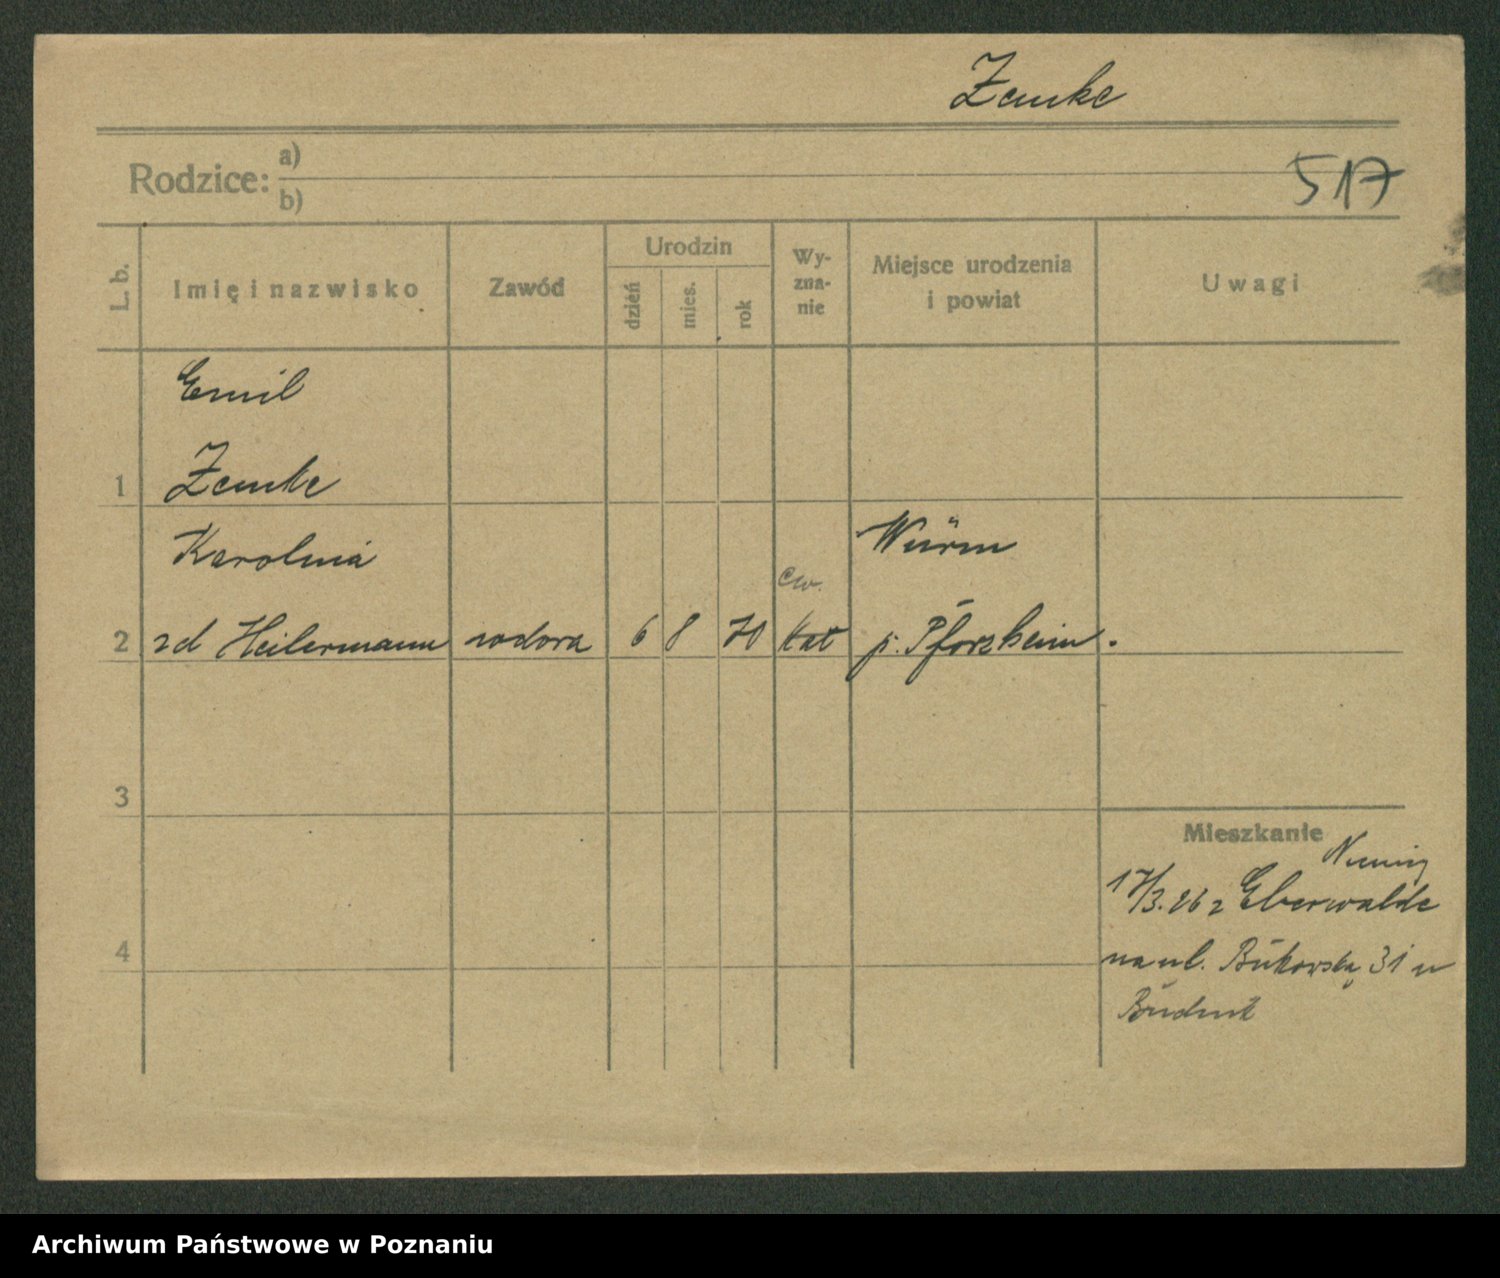 Zemke
Rodzice: a)
b)
517
L. b.
Imię i nazwisko
Zawód
Urodzin
dzień
mies.
rok
Wy-
zna-
nie
Miejsce urodzenia
i powiat
Uwagi
Emil
1 Zemke
Karolina
Würm
ew.
2 zd Heilermann wdowa 6 8 70 kat p. Pforzheim.
3
Mieszkanie
Niemiej
17/3.26 z Eberwalde
na ul. Bukowską 31 w
4
Archiwum Państwowe w Poznaniu